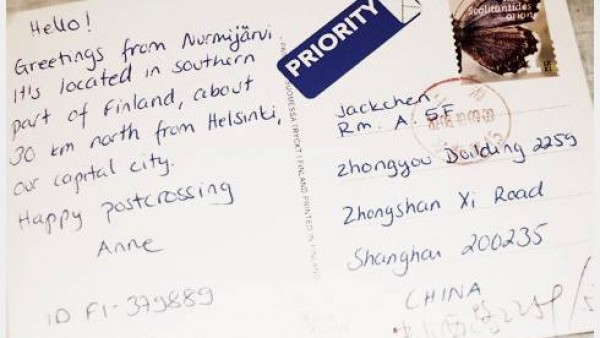 Hello!
Greetings from Nurmijärvi
It's located in southern
part of Finland, about
30 km north from Helsinki,
our capital city.
Happy postcrossing
Anne
ID FI-379889
PRIORITY
Jackchen
Rm. A. 5F
Zhongyou Building 2259
Zhongshan Xi Road
Shanghai 200235
CHINA
SUOMESSA TRYCKT I FINLAND PRINTED IN FINLAND